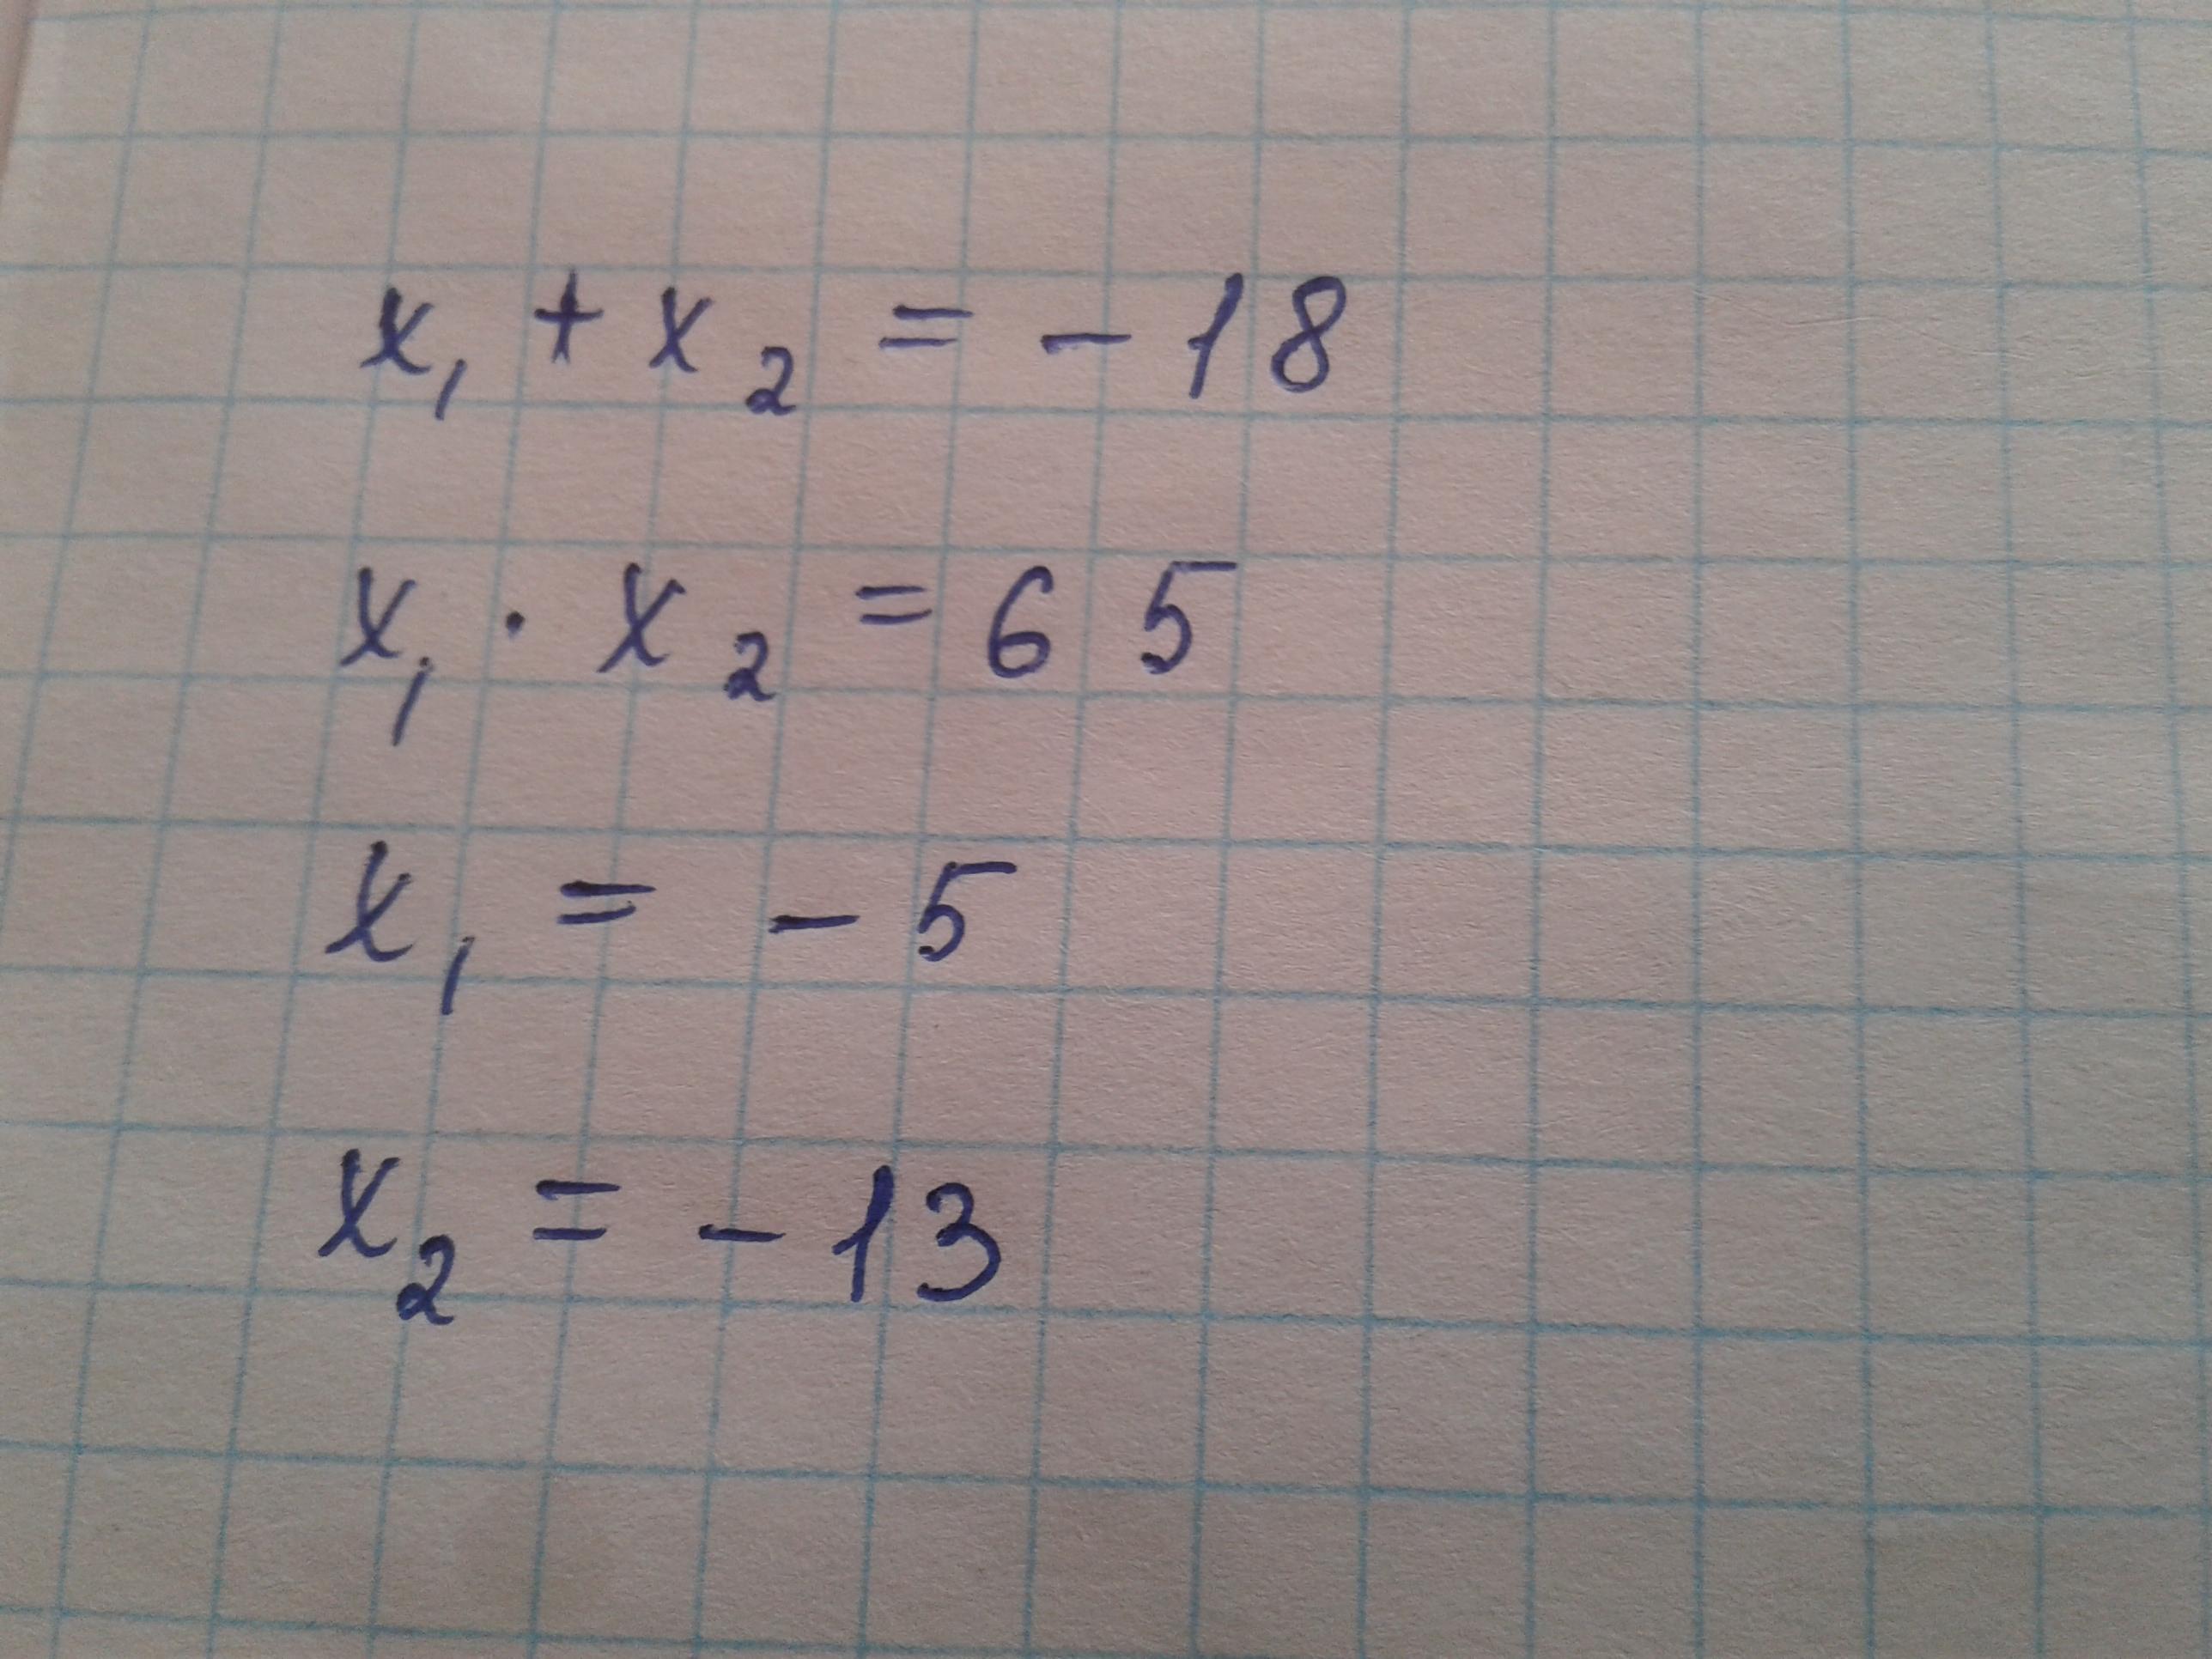 x₁ + x₂ = - 18
x₁ · x₂ = 65
x₁ = - 5
x₂ = - 13